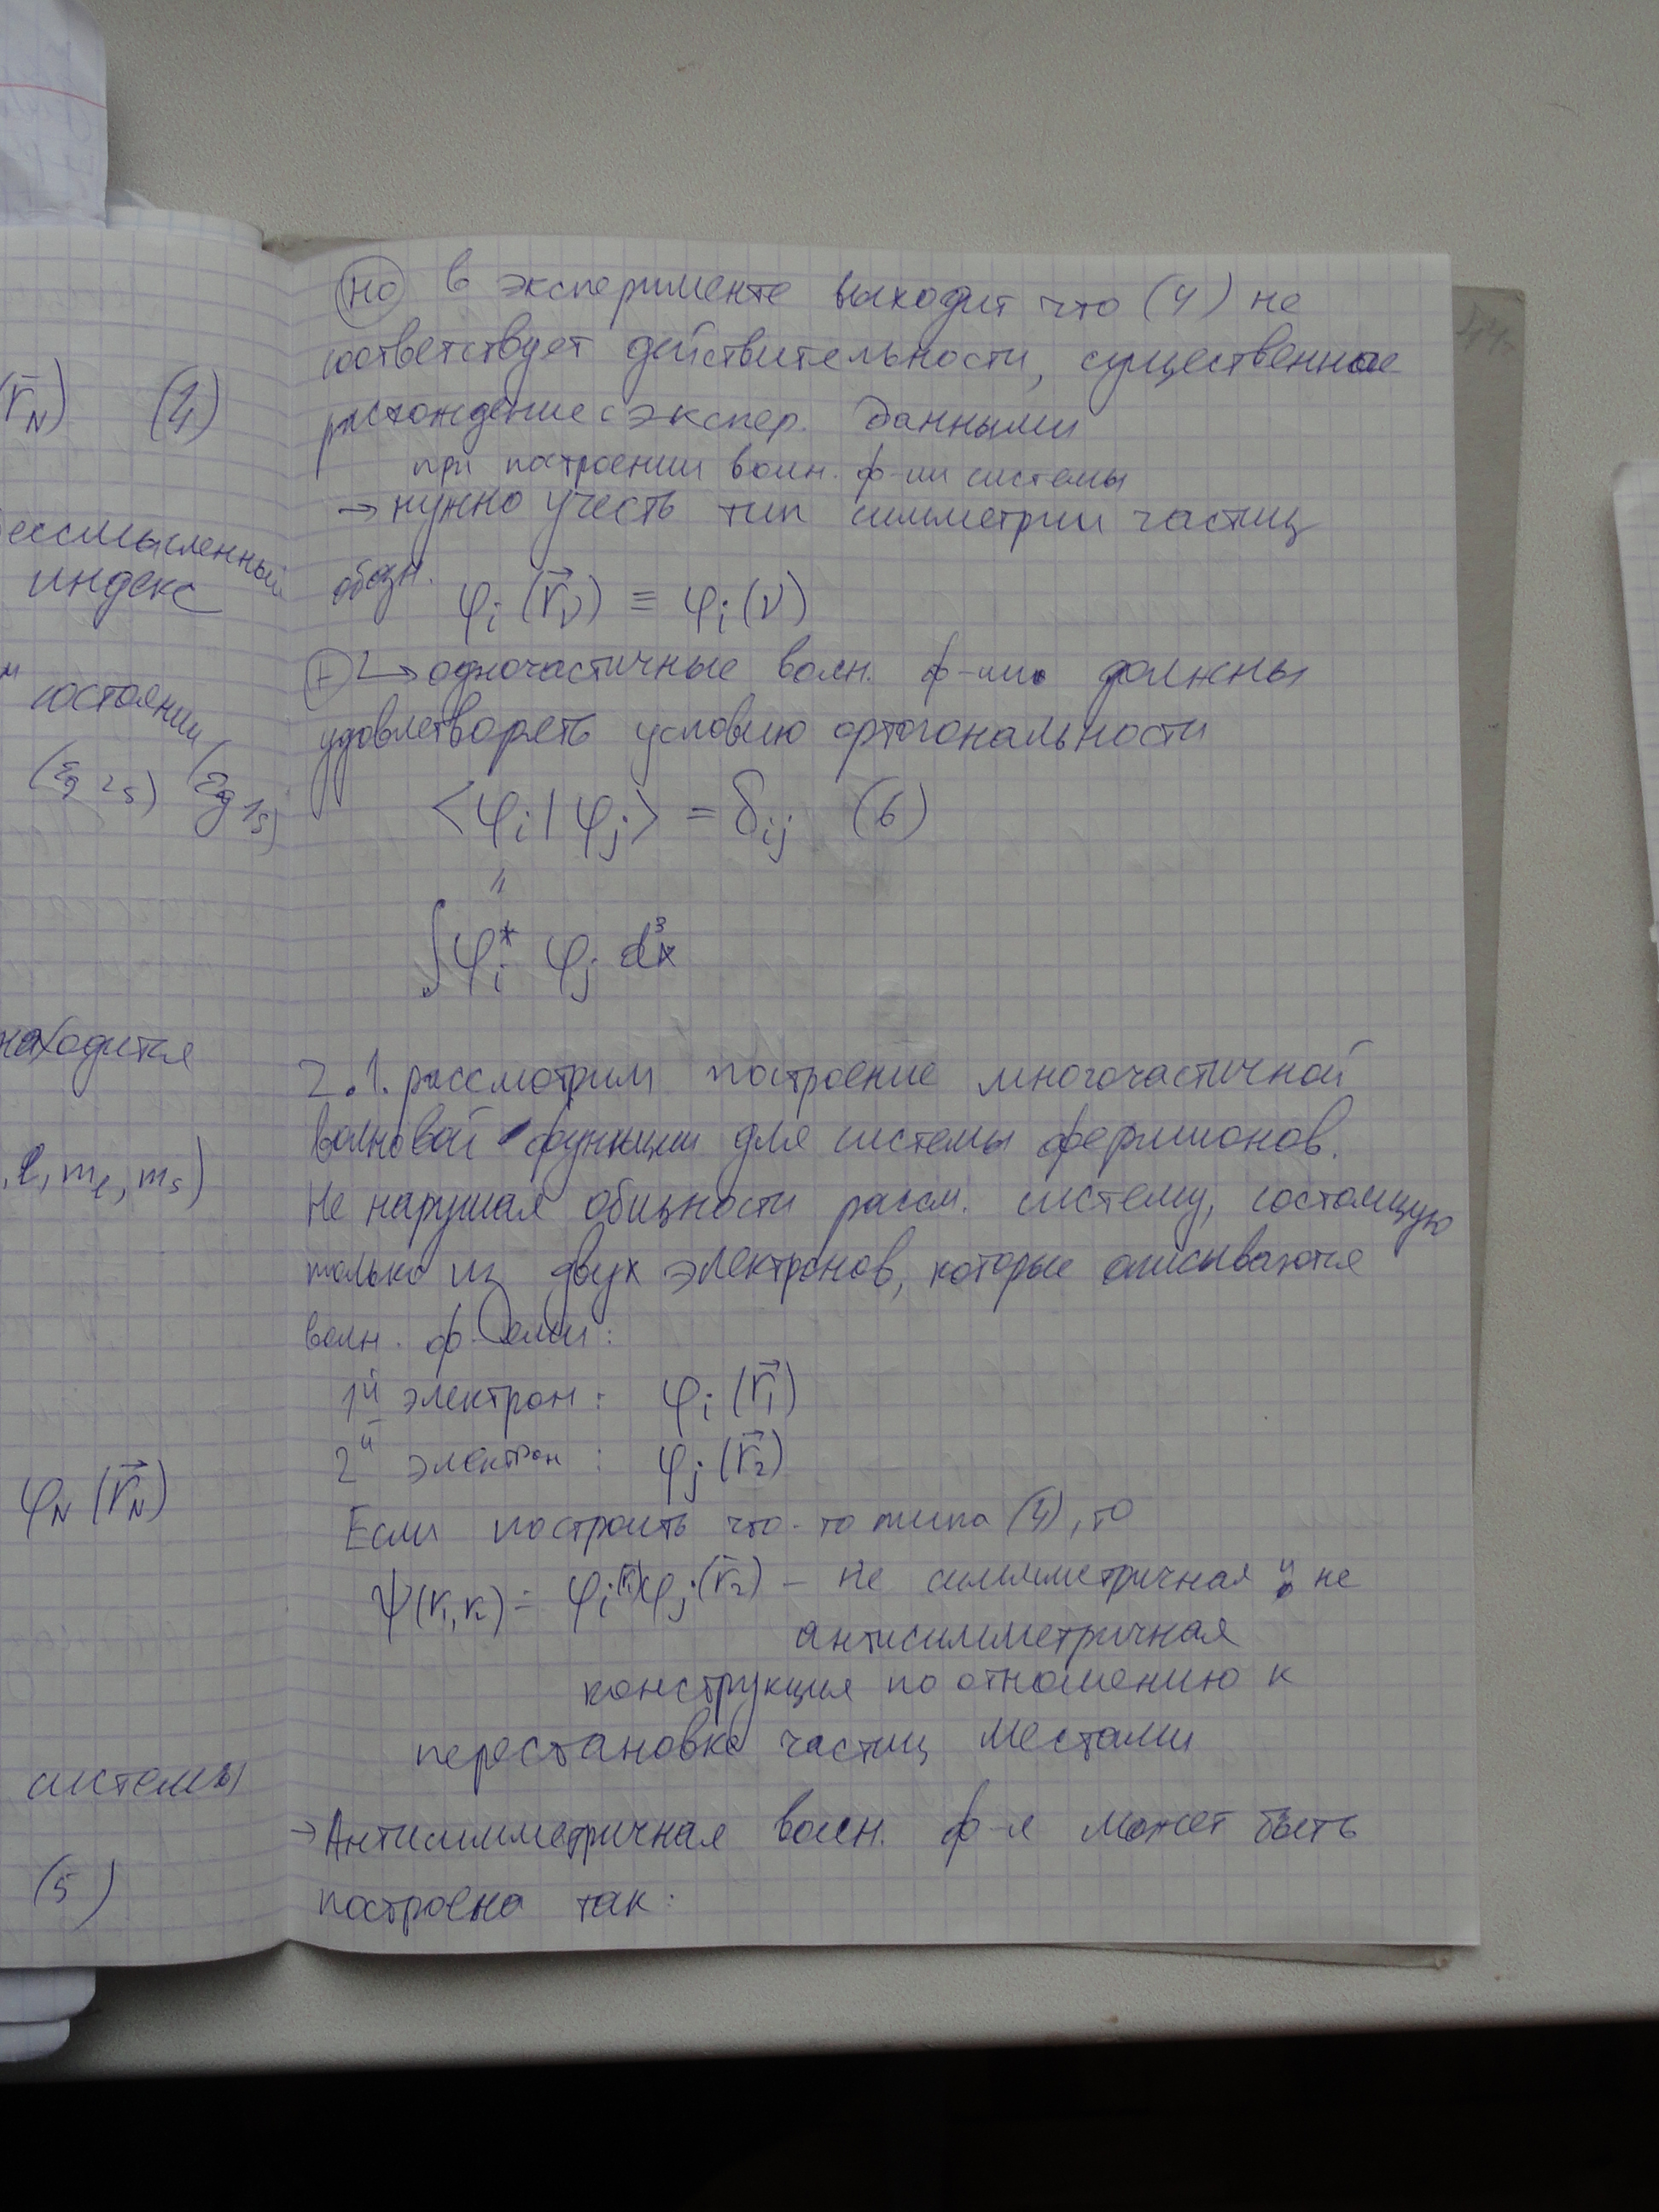 r̄_N) (4)
бессмысленный
индекс
состоянии
(Eg 2s) (Eg 1s)
находится
, l, m_l, m_s)
φ_N (r⃗_N)
системы
(5)
НО в эксперименте выходит что (4) не
соответствует действительности, существенное
расхождение с экспер. данными
при построении волн. ф-ии системы
→ нужно учесть тип симметрии частиц
обозн. φ_i (r⃗_ν) ≡ φ_i (ν)
+ → одночастичные волн. ф-ии должны
удовлетворять условию ортогональности
<φ_i | φ_j> = δ_ij (6)
"
∫ φ_i^* φ_j d³x
2.1. рассмотрим построение многочастичной
волновой функции для системы фермионов.
Не нарушая общности рассм. систему, состоящую
только из двух электронов, которые описываются
волн. ф-ями:
1й электрон: φ_i (r⃗_1)
2й электрон: φ_j (r⃗_2)
Если построить что-то типа (4), то
ψ(r_1, r_2) = φ_i(r̄_1) φ_j(r̄_2) – не симметричная и не
антисимметричная
конструкция по отношению к
перестановке частиц местами
→ Антисимметричная волн. ф-я может быть
построена так: